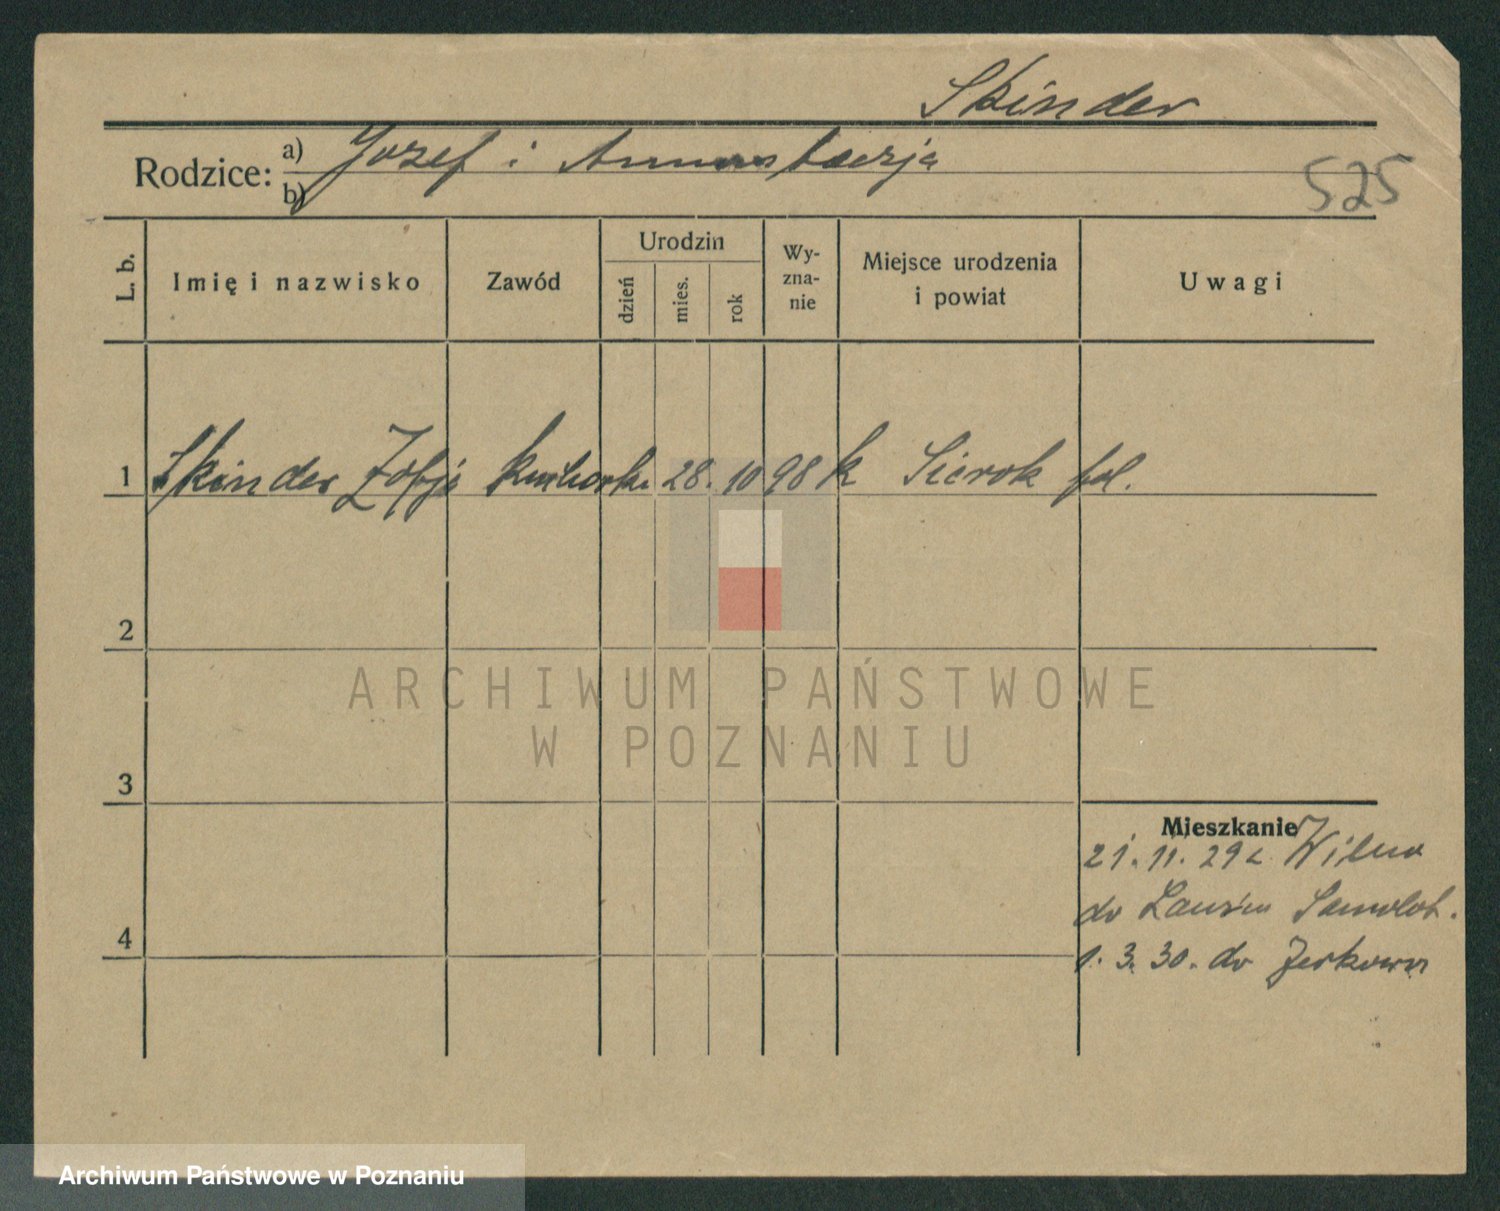 Skinder
Rodzice: a) Jozef i Annastaezja
b)
525
L. b.
Imię i nazwisko
Zawód
Urodzin
dzień
mies.
rok
Wy-
zna-
nie
Miejsce urodzenia
i powiat
Uwagi
1 Skinder Zofja kucharka 28. 10 98 k Sierok pol.
2
3
4
Mieszkanie
21. 11. 29 z Wilna
do Samolot.
1. 3. 30. do Żerkowa
ARCHIWUM PAŃSTWOWE
W POZNANIU
Archiwum Państwowe w Poznaniu